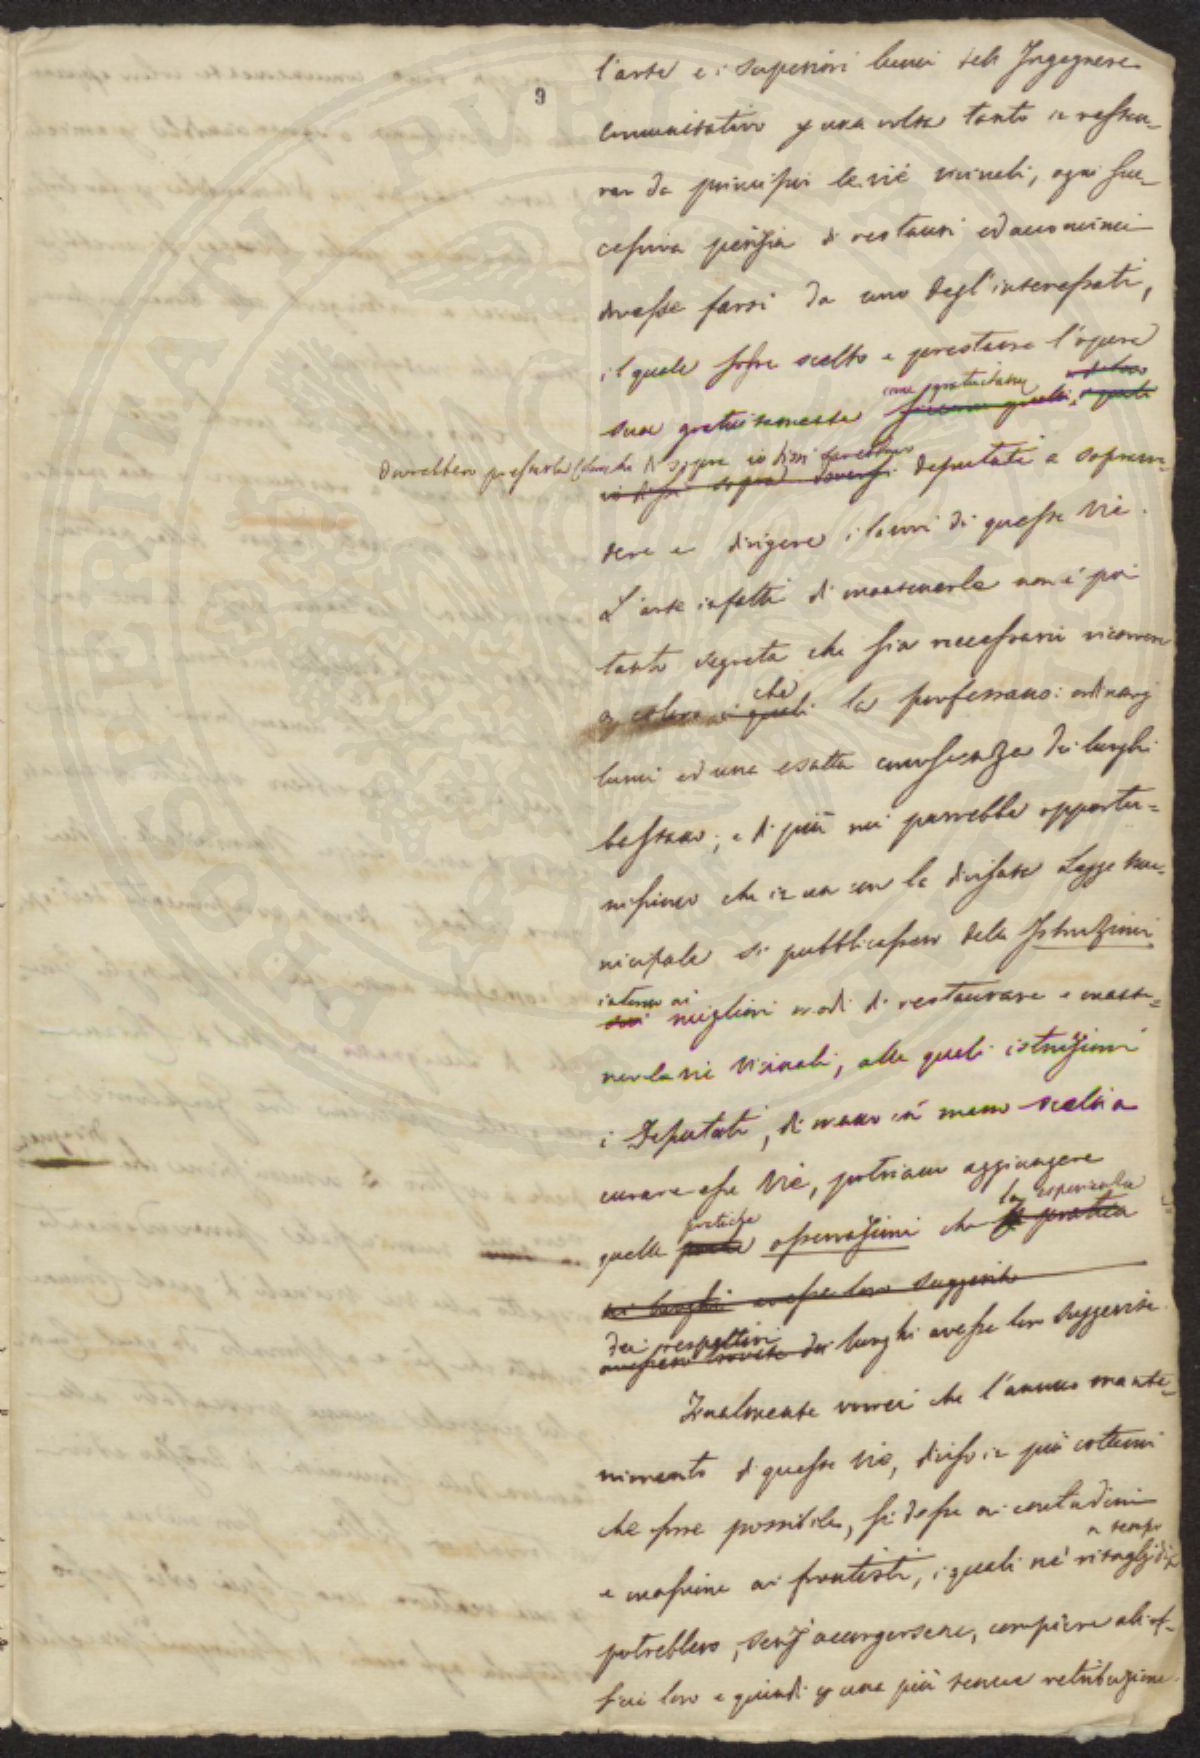 9
l'arte e i superiori lumi dell'Ingegnere
comunitativo p una volta tanto in restau-
rar da principio le vie vicinali, ogni suc-
cessiva perizia di restauri ed acconcimi
dovesse farsi da uno degl'interessati,
il quale fosse scelto a prestare l'opera
sua gratuitamente come gratuitam
Dovrebbero prestarla coloro che di sopra io dissi
io dissi sopra doversi deputati a soprinten-
dere e dirigere i lavori di queste vie.
L'arte infatti di mantenerle non è poi
tanto segreta che sia necessario ricorrere
a coloro i quali che la professano: ordinarj
lumi ed una esatta conoscenza dei luoghi
bastano; e di più mi parrebbe opportu-
nissimo che in un con la divisata Legge Mu-
nicipale si pubblicassero delle Istruzioni
intorno ai
sui migliori modi di restaurare e mante-
ner le vie vicinali, alle quali istruzioni
i Deputati, di mano in mano scelti a
curare esse vie, potriano aggiungere
quelle pratiche osservazioni che la esperienza
la pratica
dei luoghi avesse loro suggerito
dei respettivi
avessero trovate dei luoghi avesse loro suggerite.
Finalmente vorrei che l'annuo mante-
nimento di queste vie, diviso in più cottimi
che fosse possibile, si desse ai contadini
e massime ai frontisti, i quali ne' ritagli di
tempo
potrebbero, senz'accorgersene, compiere all'of-
ficio loro e quindi p una più tenue retribuzione.